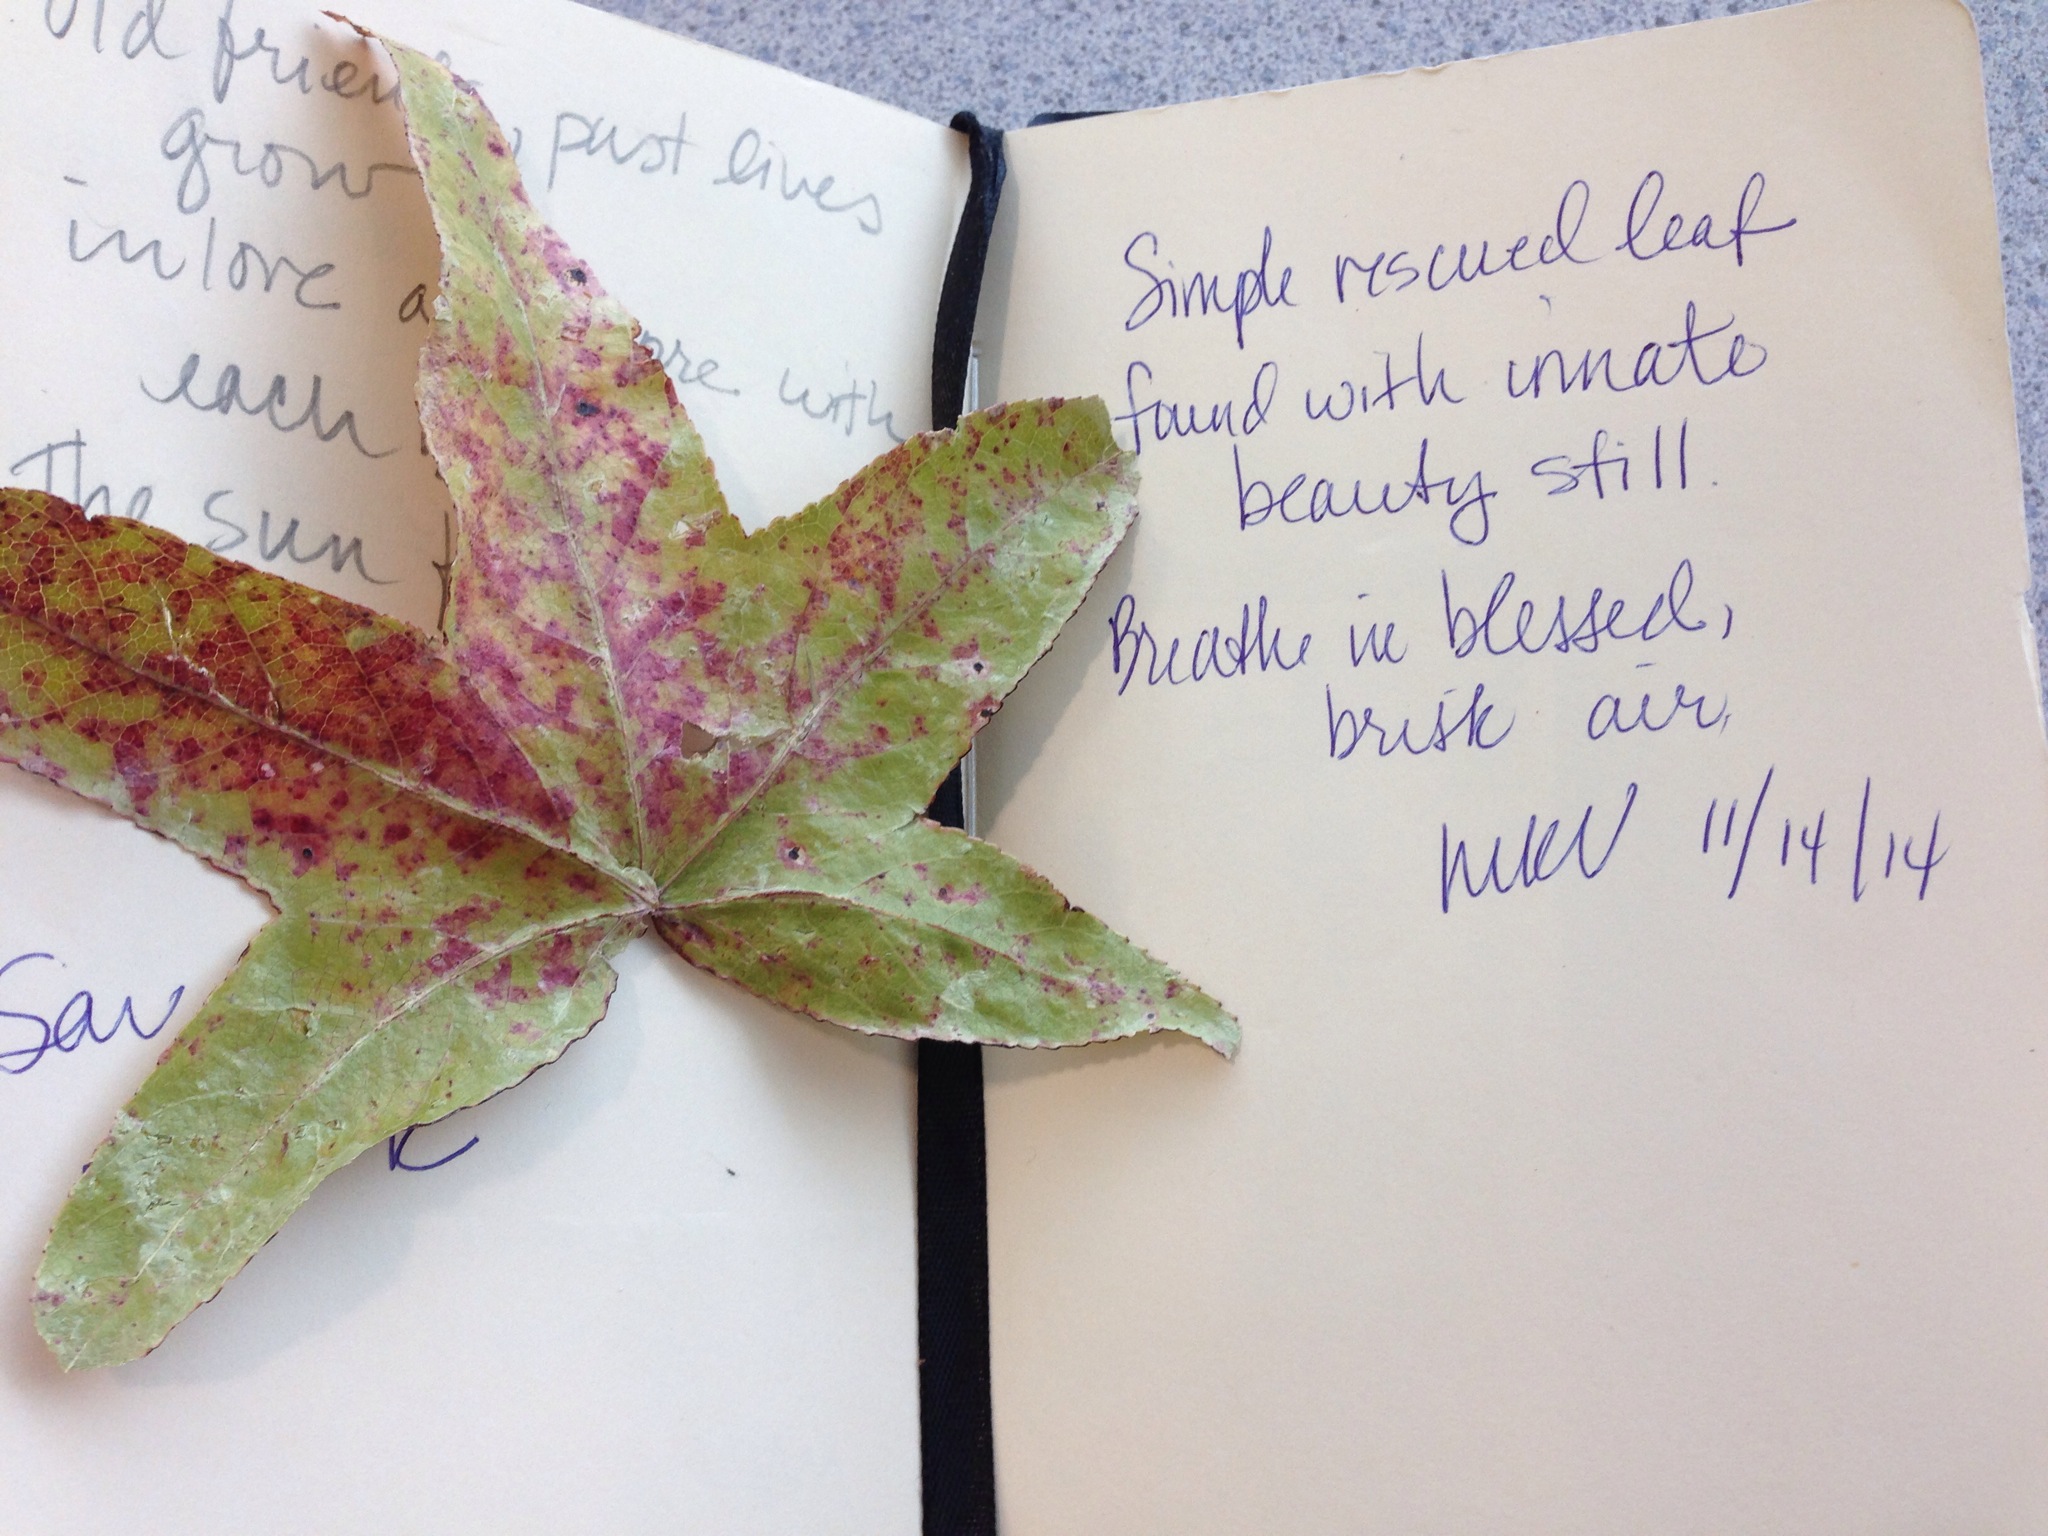 Old friends
grow past lives
in love
each with
The sun
Sav
Simple rescued leaf
found with innate
beauty still.
Breathe in blessed,
brisk air.
MKV 11/14/14